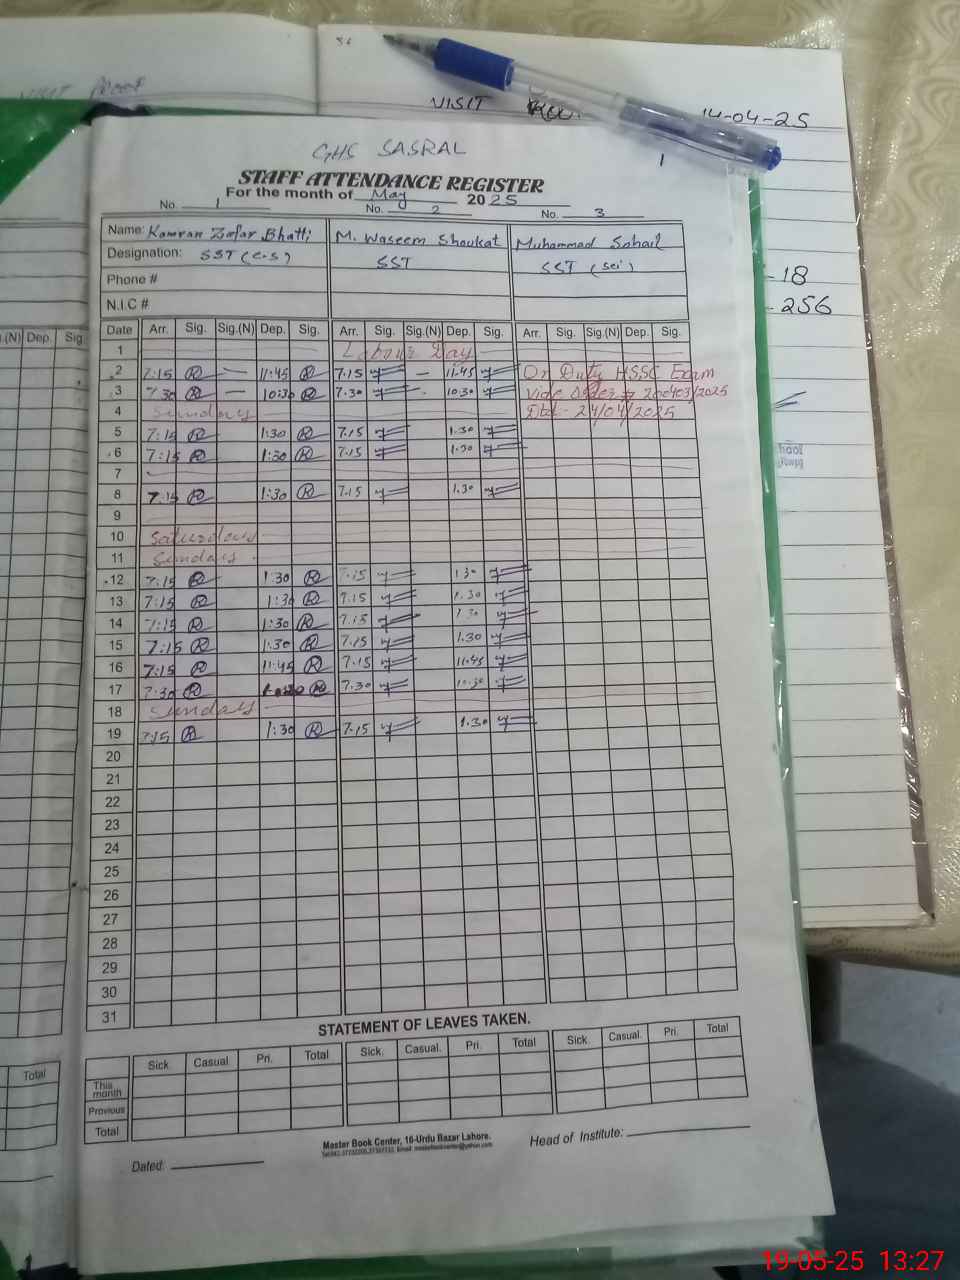 VISIT
VISIT
14-04-25
GHS SASRAL
1
STAFF ATTENDANCE REGISTER
For the month of May 2025
No. 1 No. 2 No. 3
Name: Kamran Zafar Bhatti M. Waseem Shoukat Muhammad Sohail
Designation: SST (C.S) SST SST (Sci)
Phone #
N.I.C #
Date Arr. Sig. Sig.(N) Dep. Sig. Arr. Sig. Sig.(N) Dep. Sig. Arr. Sig. Sig.(N) Dep. Sig.
1 Labour Day
2 7:15 11:45 7.15 11.45 On Duty HSSC Exam
3 7:30 10:30 7.30 10.30 Vide order # 200403/2025
4 Sunday Dtd:- 24/04/2025
5 7:15 1:30 7.15 1.30
6 7:15 1:30 7.15 1.30
7
8 7:15 1:30 7.15 1.30
9
10 Saturdays
11 Sundays
12 7:15 1:30 7.15 1.30
13 7:15 1:30 7.15 1.30
14 7:15 1:30 7.15 1.30
15 7:15 1:30 7.15 1.30
16 7:15 11:45 7.15 11.45
17 7:30 7.30 10.30
18 Sundays
19 7:15 1:30 7.15 1.30
20
21
22
23
24
25
26
27
28
29
30
31
STATEMENT OF LEAVES TAKEN.
Sick. Casual Pri. Total Sick. Casual. Pri. Total Sick. Casual. Pri. Total
This month
Previous
Total
Master Book Center, 16-Urdu Bazar Lahore.
Dated: Head of Institute:
(N) Dep. Sig.
Total
-18
256
19-05-25 13:27